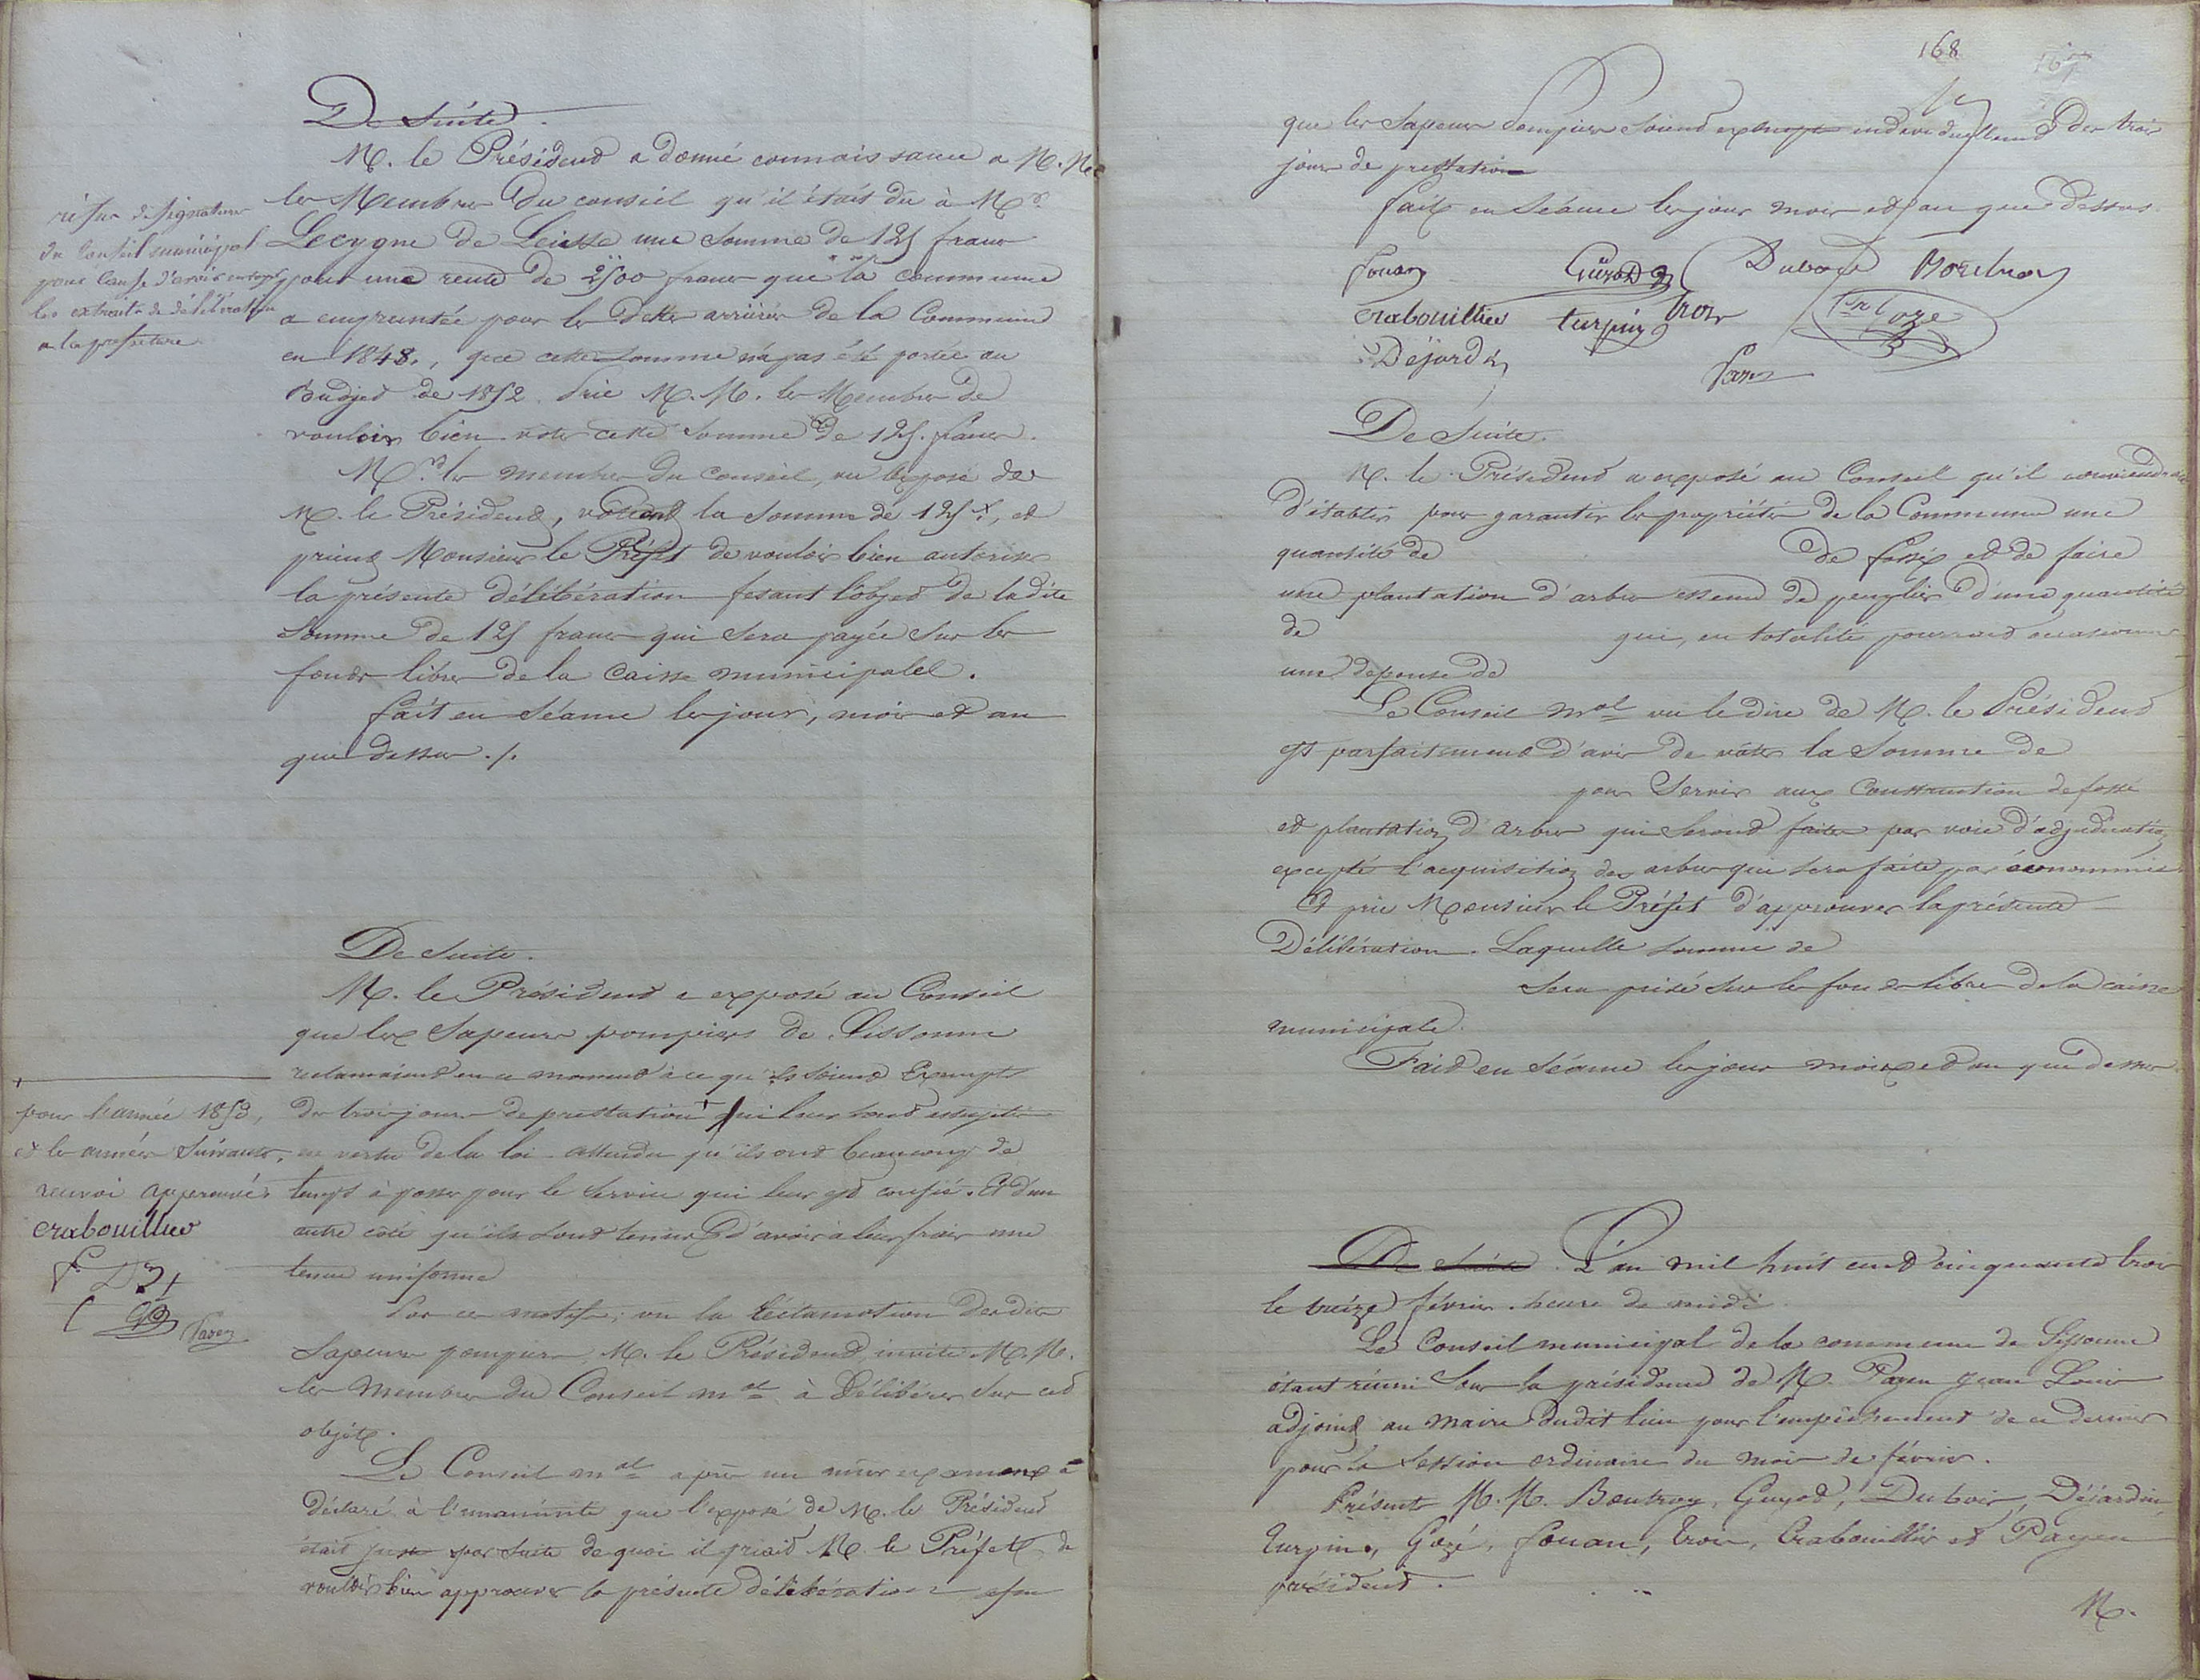 De Suite.
M. le Président a donné connaissance a M. M.
les Membres Du conseil qu'il étais du à Mr.
Lecygne de Leisse une Somme de 125 francs
pour une rente de 2500 francs que la commune
a empruntée pour les Dettes arriérés de la Commune
en 1848., que cette somme n'a pas été portée au
Budjet de 1852. Prie M. M. les Membres de
vouloir bien voter cette Somme de 125. francs.
Mrs. les membres du conseil, vu l'exposé de
M. le Président, votent la Somme de 125 f., et
prient Monsieur le Préfet de vouloir bien autoriser
la présente délibération fesant l'objet de ladite
Somme de 125 francs qui sera payée sur les
fonds libres de la Caisse municipale.
fait en Séance les jour, mois et an
que dessus ./.
refus de signature
du Conseil municipal
pour Cause d'avoir envoyé
les extraits de délibération
a la prefecture.
De Suite.
M. le Président a exposé au Conseil
que les Sapeurs pompiers de Sissonne
reclamaient en ce moment à ce qu'ils soient Exempts
des trois jours de prestation qui leur sont assujetis
en vertu de la loi attendu qu'ils ont beaucoup de
temps à passer pour le service qui leur est confié. Et d'un
autre côté qu'ils sont tenus d'avoir à leur frais une
tenue uniforme
Par ces motifs, vu la Réclamation desdits
Sapeurs pompiers, M. le Président, invite M. M.
les Membres du Conseil mal à Délibérer sur cet
objet.
Le Conseil mal après un mûr examen a
Déclaré à l'unanimité que l'exposé de M. le Président
était juste par suite de quoi il priait M. le Préfet de
vouloir bien approuver la présente délibération afin
pour l'année 1853,
et les années suivantes.
renvoi approuvé
Crabouillier
Payen
168
que les Sapeurs Pompiers soient exempts individuellement des trois
jours de prestation
fait en Séance les jour mois et an que dessus
fouan Guyot Dubois Boutroy
Crabouillier turpin Trois Gozé
Déjardin Payen
De Suite.
M. le Président a exposé au Conseil qu'il conviendrait
d'établir pour garantir les propriétés de la Commune une
quantité de de fossé et de faire
une plantation d'arbres essence de peupliers d'une quantité
de qui, en totalité pourrait occasionner
une dépense de
Le Conseil mal vu le dire de M. le Président
est parfaitement d'avis de voter la Somme de
pour Servir aux Construction de fossé
et plantation d'arbres qui seront faites par voie d'adjudication
excepté l'acquisition des arbres qui sera faite par économie
Et prie Monsieur le Préfet d'approuver la présente
Délibération. Laquelle somme de
sera prise sur les fonds libres de la caisse
municipale.
Fait en Séance les jour mois et an que dessus.
De Suite. L'an mil huit cent cinquante trois
le treize février. heure de midi.
Le Conseil municipal de la commune de Sissonne
étant réuni Sous la présidence de M. Payen Jean Louis
adjoint au Maire dudit lieu pour l'empêchement de ce dernier
pour la Session ordinaire du mois de février.
Présents M. M. Boutroy, Guyot, Dubois, Déjardin
Turpin, Gozé, fouan, Trois, Crabouillier et Payen
président.
M.